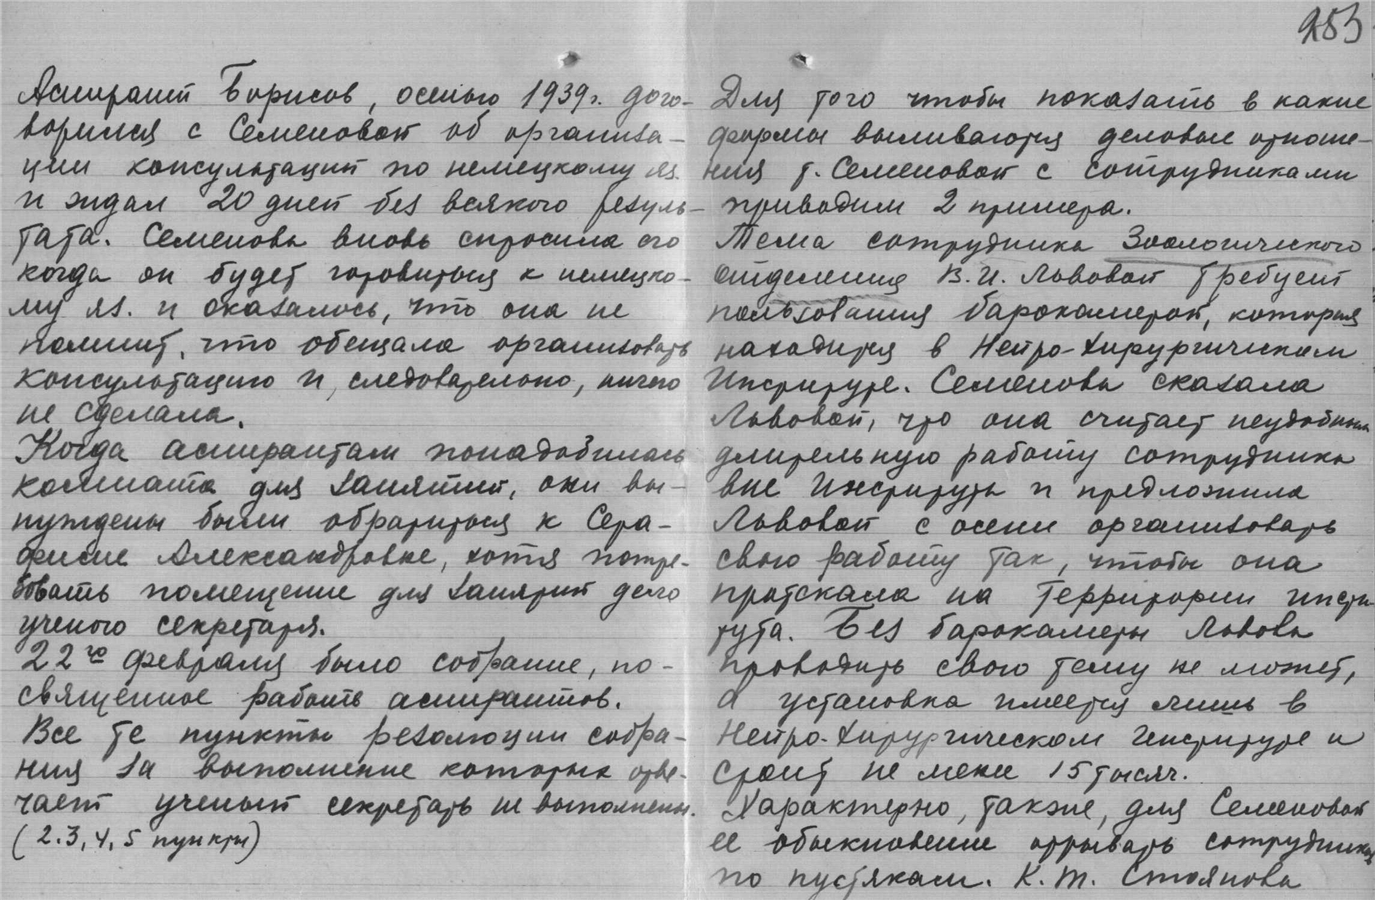 253
Аспирант Борисов, осенью 1939г. дого-
ворился с Семеновой об организа-
ции консультаций по немецкому яз.
и ждал 20 дней без всякого резуль-
тата. Семенова вновь спросила его
когда он будет готовиться к немецко-
му яз. и оказалось, что она не
помнит, что обещала организовать
консультацию и, следовательно, ничего
не сделала.
Когда аспирантам понадобилась
комната для занятий, они вы-
нуждены были обратиться к Сера-
фиме Александровне, хотя потре-
бовать помещение для занятий дело
ученого секретаря.
22го февраля было собрание, по-
священное работе аспирантов.
Все те пункты резолюции собра-
ния за выполнение которых отве-
чает ученый секретарь не выполнены.
(2.3,4,5 пункты)
Для того чтобы показать в какие
формы выливаются деловые отноше-
ния т. Семеновой с сотрудниками
приводим 2 примера.
Тема сотрудника Зоологического
отделения В.И. Львовой требует
пользования барокамерой, которая
находится в Нейро-Хирургическом
Институте. Семенова сказала
Львовой, что она считает неудобным
длительную работу сотрудника
вне Института и предложила
Львовой с осени организовать
свою работу так, чтобы она
протекала на территории инсти
тута. Без барокамеры Львова
проводить свою тему не может,
а установка имеется лишь в
Нейро-Хирургическом Институте и
строит не менее 15 тысяч.
Характерно, также, для Семеновой
ее обыкновение отрывать сотрудников
по пустякам. К.Т. Стоянова